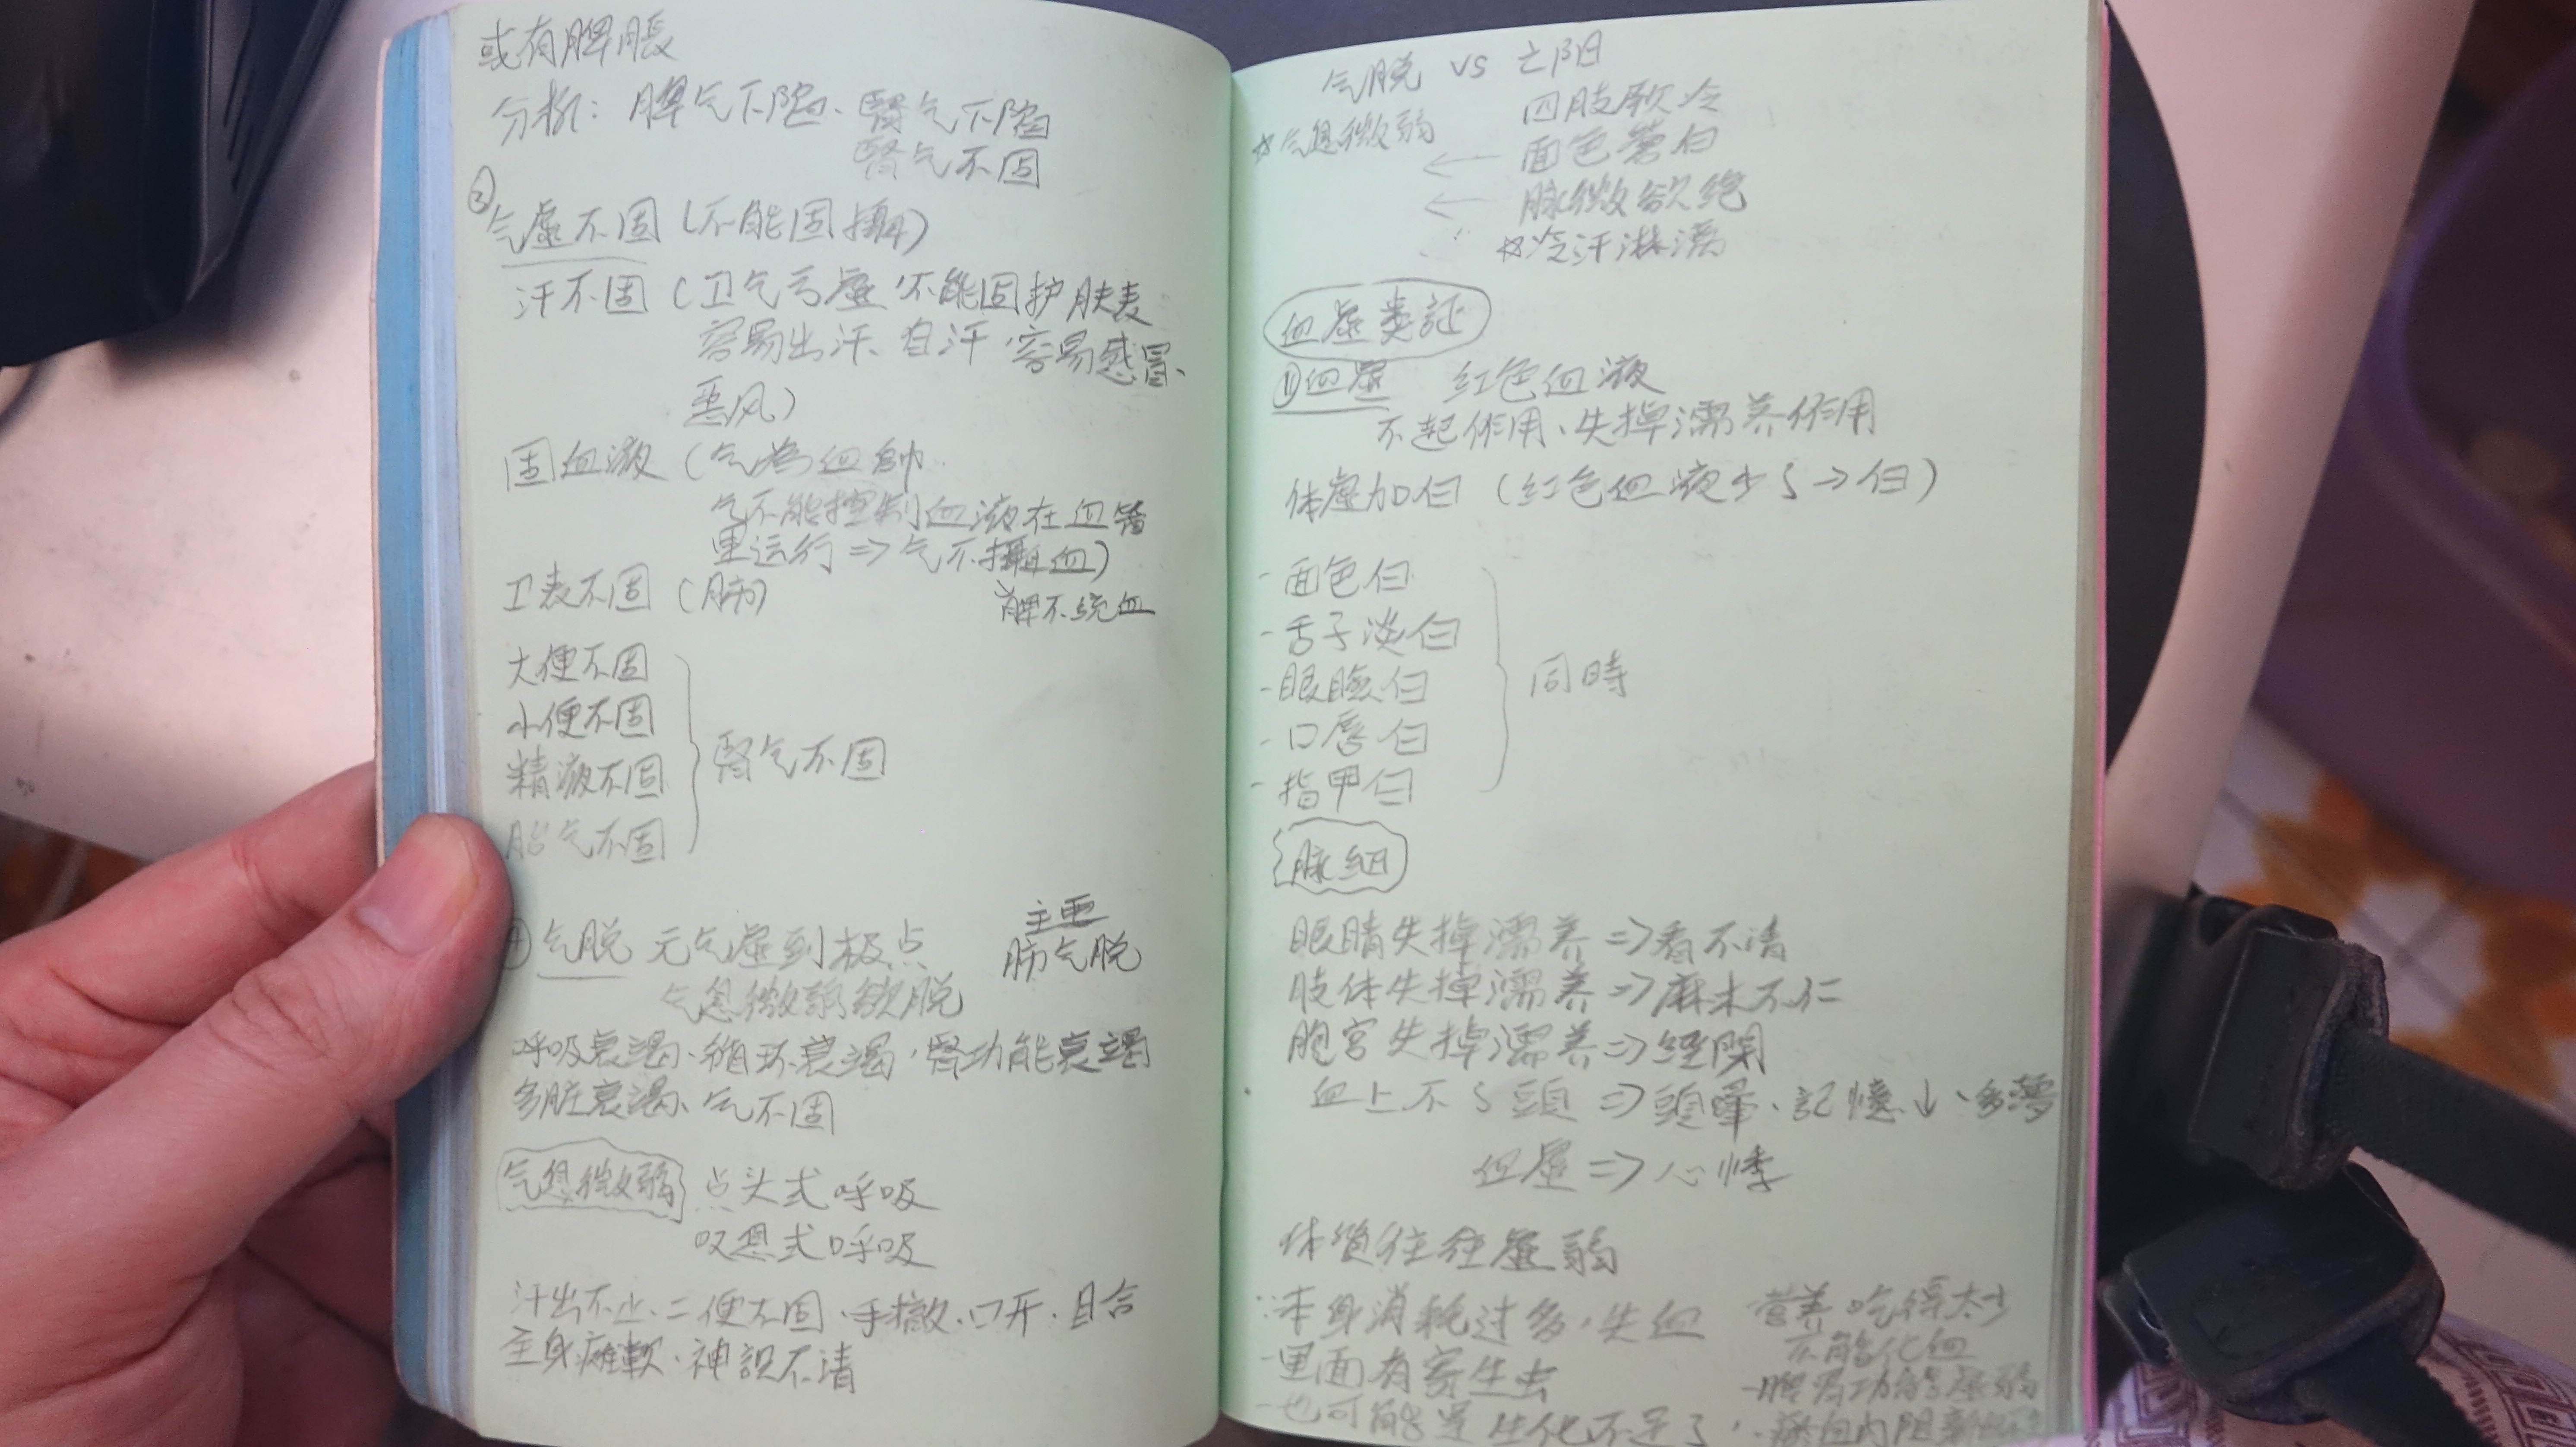 或有脾脹
分析：脾气下陷、腎气下陷
腎气不固
③
气虚不固（不能固攝）
汗不固（卫气亏虚，不能固护肤表
容易出汗、自汗，容易感冒、
恶风）
固血液（气為血帥
气不能控制血液在血管
里运行⇒气不攝血）
脾不统血
卫表不固（肺）
大便不固
小便不固
精液不固
胎气不固
腎气不固
④气脱 元气虚到极点
主要
肺气脱
气息微弱欲脱
呼吸衰竭、循环衰竭，腎功能衰竭
多脏衰竭、气不固
气息微弱 点头式呼吸
叹息式呼吸
汗出不止、二便不固、手撒、口开、目合
全身瘫軟、神識不清
气脱 vs 亡阳
四肢厥冷
☆气息微弱
← 面色蒼白
← 脉微欲绝
☆冷汗淋漓
血虚类証
①血虚 红色血液
不起作用、失掉濡养作用
体虚加白（红色血液少了→白）
- 面色白
- 舌子淡白
- 眼瞼白
- 口唇白
- 指甲白
同時
脉细
眼睛失掉濡养⇒看不清
肢体失掉濡养⇒麻木不仁
胞宫失掉濡养⇒經閉
血上不了頭⇒頭暈、記憶↓、多夢
血虚⇒心悸
体質往往虚弱
∵本身消耗过多，失血
- 里面有寄生虫
- 也可能是生化不足了
营养吃得太少
不能化血
- 脾胃功能虚弱